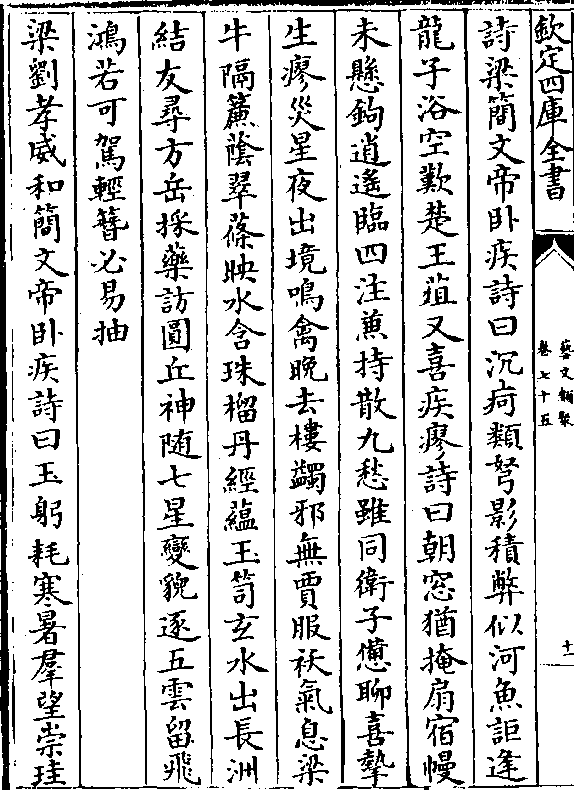 欽定四庫全書
藝文類聚
卷七十五
十一
詩梁簡文帝卧疾詩曰沉疴類弩影積弊似河魚詎逢
龍子浴空歎楚王葅又喜疾瘳詩曰朝窓猶掩扇宿幔
未懸鉤逍遙臨四注兼持散九愁雖同衛子憊聊喜摯
生瘳災星夜出境鳴禽晚去樓蠲邪無賈服祅氣息梁
牛隔簾蔭翠篠映水含珠榴丹經蘊玉笥玄水出長洲
結友尋方岳採藥訪圓丘神随七星變貌逐五雲留飛
鴻若可駕輕簪必易抽
梁劉孝威和簡文帝卧疾詩曰玉躬耗寒暑羣望崇珪